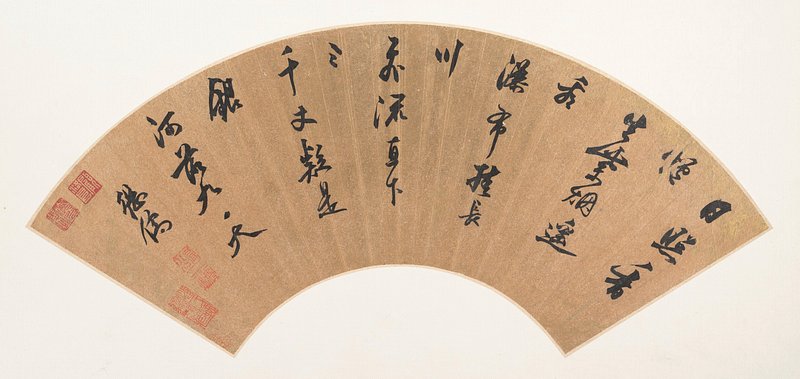 日照香
爐
生紫烟遥
看
瀑布挂長
川
飛流直下
三
千丈疑是
銀
河落九天
繼儒